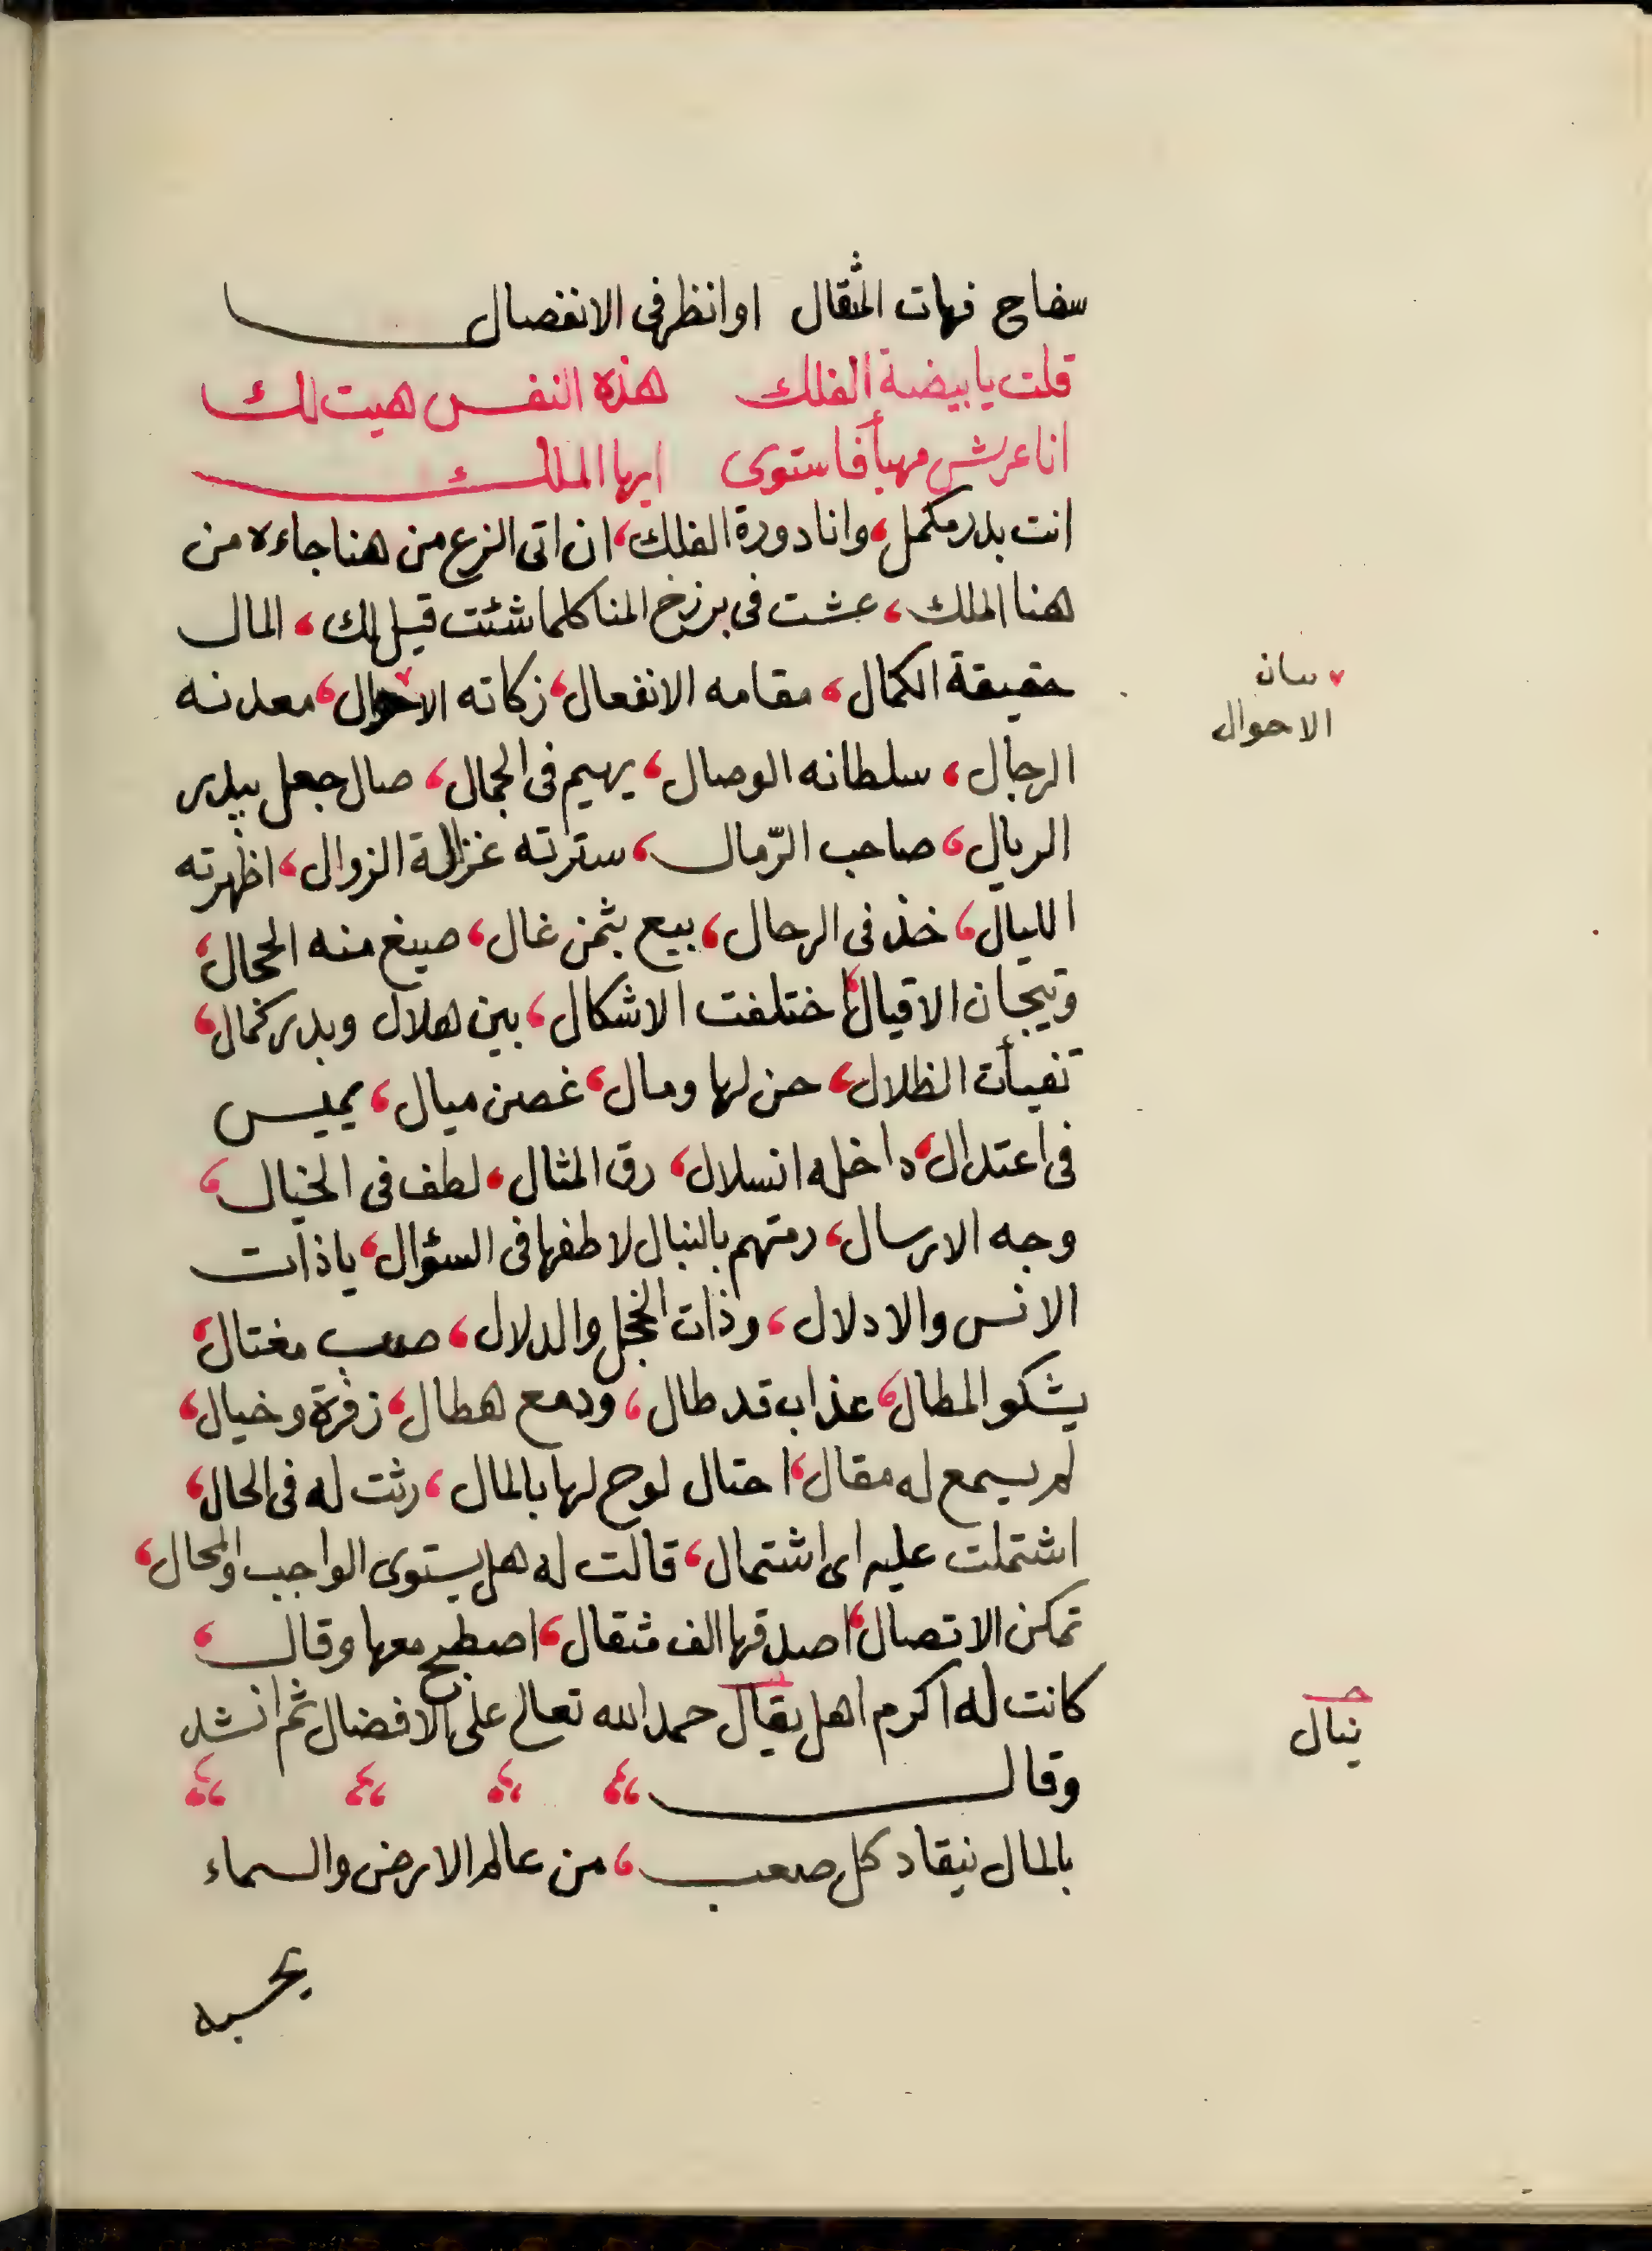 سفاح فهات المثقال اوانظر فى الانفصال
قلت يا بيضة الفلك هذه النفس هيت لك
انا عرش مهيأ فاستوى ايها الملك
انت بدر مكمل، وانا دورة الفلك، ان اتى الزرع من هنا جاءه من
هنا الملك، عشت فى برزخ المنا كلما شئت قيل لك، المال
حقيقة الكمال، مقامه الانفعال، زكاته الاحوال، معدنه
الرجال، سلطانه الوصال، يهيم فى الجمال، صال جعل بيدر
الريال، صاحب الرّمال، سترته غزالة الزوال، اظهرته
الليال، خذ فى الرحال، بيع بثمن غال، صيغ منه الحجال،
وتيجان الاقيال، اختلفت الاشكال، بين هلال وبدر كمال،
تفيأت الظلال، حن لها ومال، غصن ميال، يميس
فى اعتدال، داخله انسلال، رق المثال، لطف فى الخيال،
وجه الارسال، رمتهم بالنبال لاطفها فى السؤال، يا ذات
الانس والادلال، وذات الخجل والدلال، صب مغتال،
يشكو المطال، عذاب قد طال، ودمع هطال، زفرة وخيال،
لم يسمع له مقال، احتال لوح لها بالمال، رثت له فى الحال،
اشتملت عليه اى اشتمال، قالت له هل يستوى الواجب والمحال،
تمكن الاتصال، اصدقها الف مثقال، اصطبح معها وقال،
كانت له اكرم اهل يقال حمد الله تعالى على الافضال ثم انشد
وقال
بالمال ينقاد كل صعب، من عالم الارض والسماء
يحسبه
بيان
الاحوال
ينال